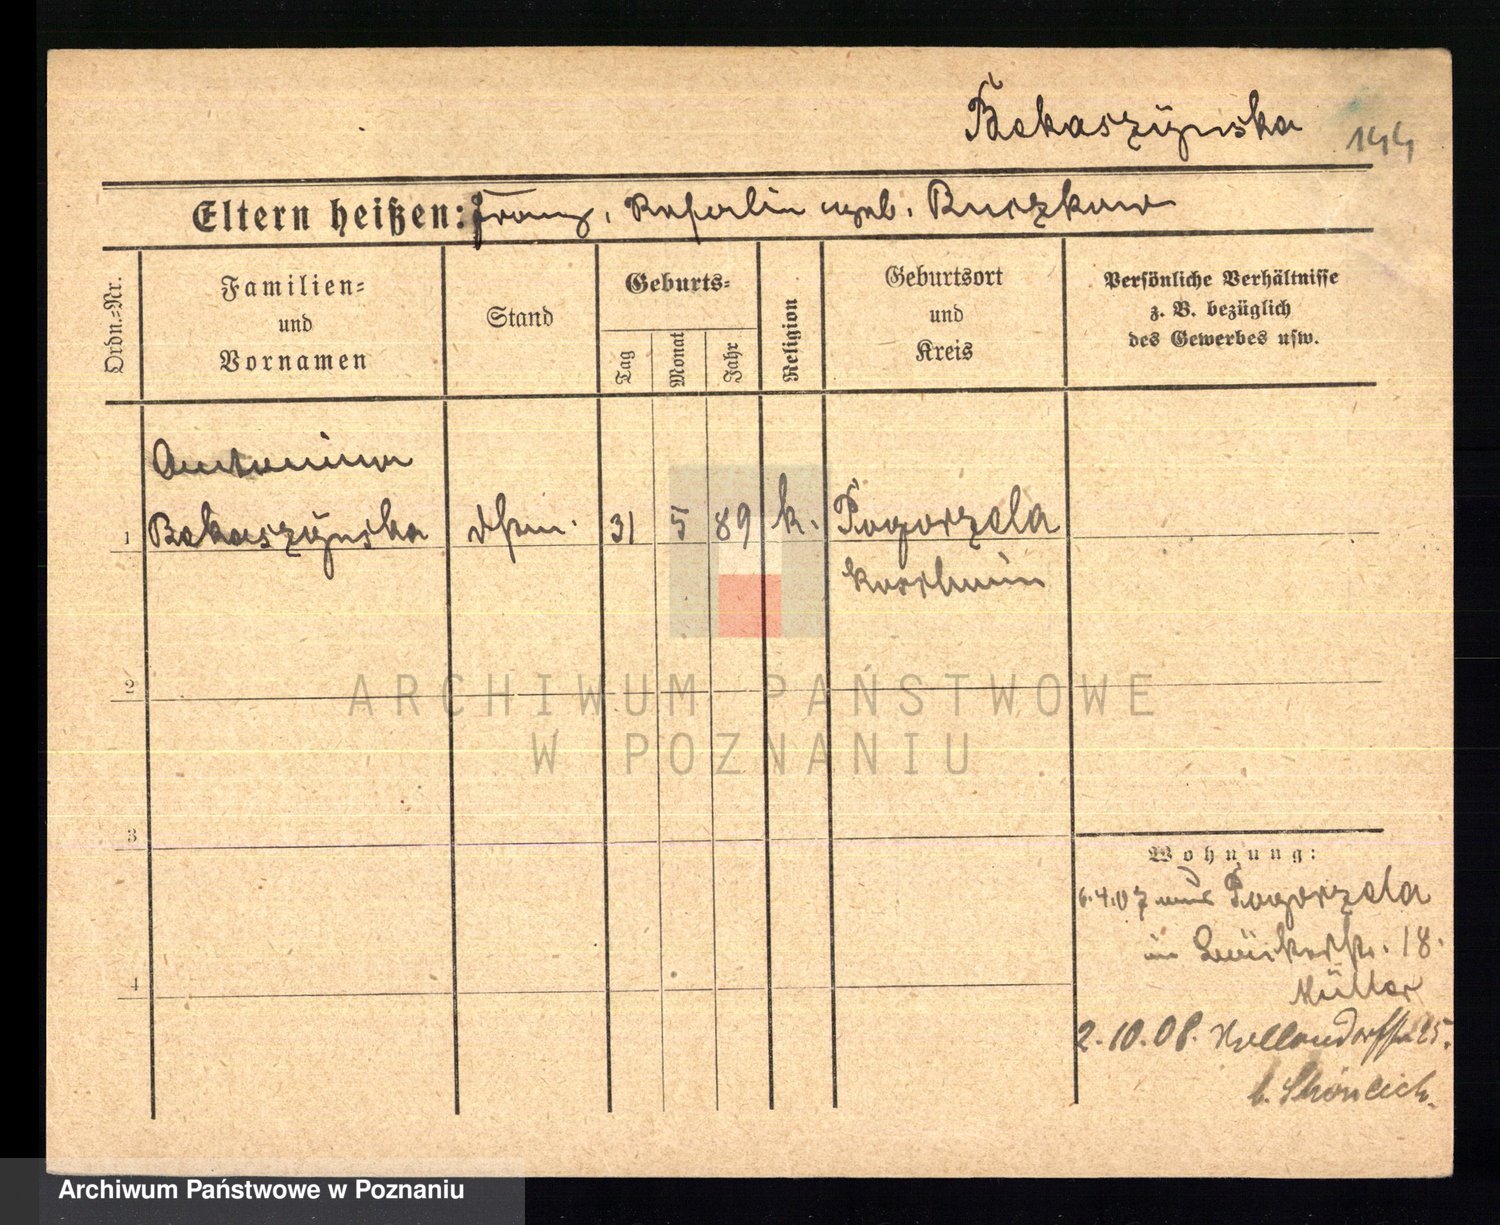 Bekaszyńska 144
Eltern heißen: Franz, Kathalin geb. Ruszkow
Ordn.-Nr.
Familien-
und
Vornamen
Stand
Geburts-
Tag
Monat
Jahr
Religion
Geburtsort
und
Kreis
Persönliche Verhältnisse
z. B. bezüglich
des Gewerbes usw.
Antonina
1 Bekaszyńska 31 5 89 k. Pogorzela
Koschmin
2
ARCHIWUM PAŃSTWOWE
W POZNANIU
3
4
Wohnung:
6.4.07 aus Pogorzela
in 18.
Müller
2.10.08. 25.
b.
Archiwum Państwowe w Poznaniu